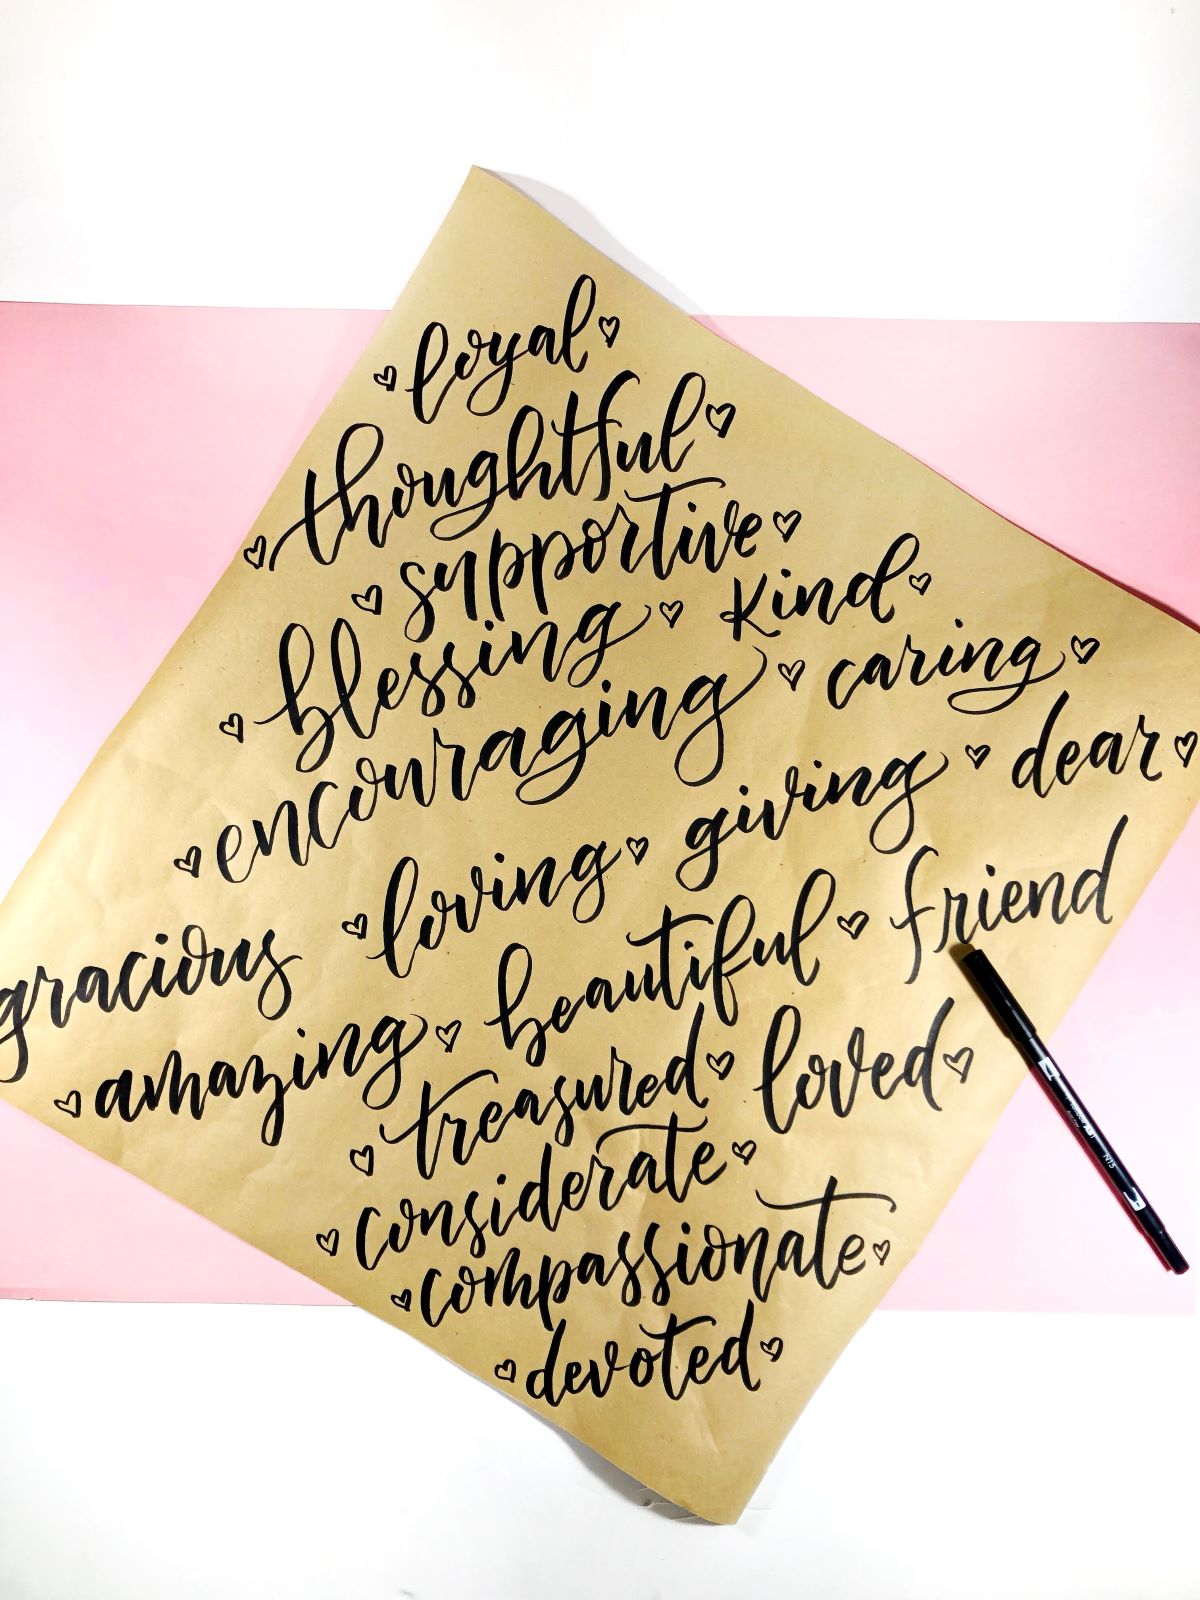 loyal
thoughtful
supportive
blessing kind
encouraging caring
gracious loving giving dear
amazing beautiful friend
treasured loved
considerate
compassionate
devoted
N15